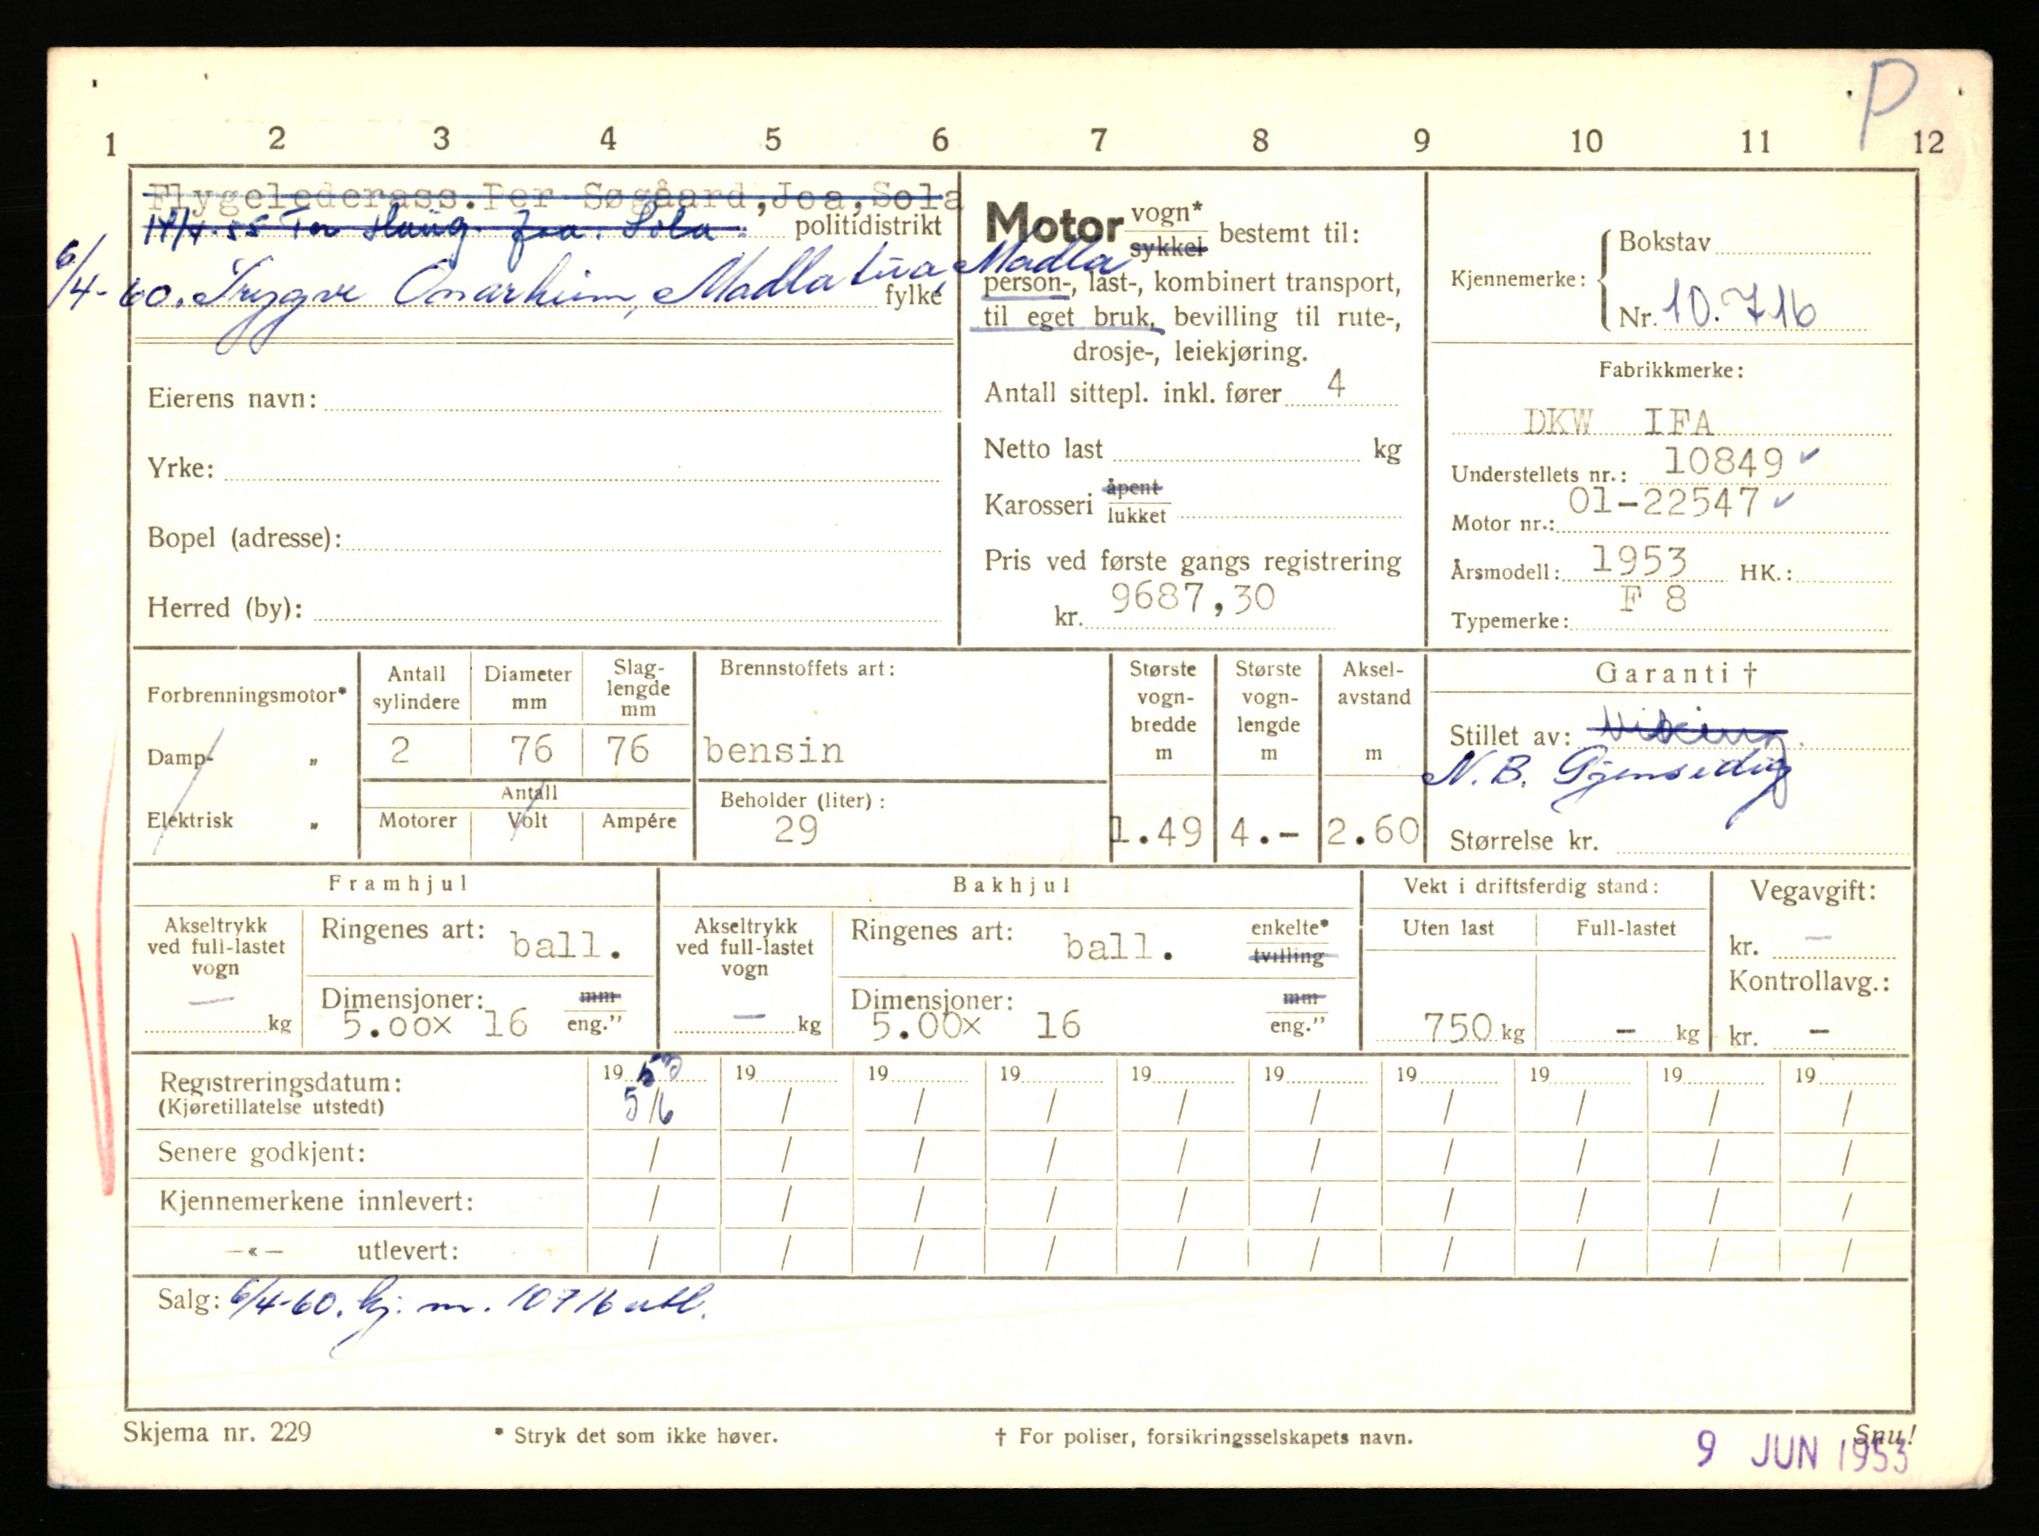 P
1 2 3 4 5 6 7 8 9 10 11 12
Flygelederass. Per Søgaard, Joa, Sola
14/4.55 Tor Haug. Joa. Sola. politidistrikt
6/4-60. Trygve Onarheim, Madlatua, Madla fylke
Eierens navn:
Yrke:
Bopel (adresse):
Herred (by):
Motor vogn* sykkel bestemt til:
person-, last-, kombinert transport,
til eget bruk, bevilling til rute-,
drosje-, leiekjøring.
Antall sittepl. inkl. fører 4
Netto last kg
Karosseri åpent lukket
Pris ved første gangs registrering
kr. 9687,30
Kjennemerke: Bokstav
Nr. 10.716
Fabrikkmerke:
DKW IFA
Understellets nr.: 10849 ✓
Motor nr.: 01-22547 ✓
Årsmodell: 1953 HK.:
Typemerke: F 8
Forbrenningsmotor*
Damp- „
Elektrisk „
Antall sylindere
Diameter mm
Slag-lengde mm
2 76 76
Antall
Motorer Volt Ampére
Brennstoffets art:
bensin
Beholder (liter):
29
Største vogn-bredde m
1.49
Største vogn-lengde m
4.-
Aksel-avstand m
2.60
Garanti †
Stillet av: Viking
N. B. Gjensidig
Størrelse kr.
Framhjul
Akseltrykk ved full-lastet vogn
— kg
Ringenes art: ball.
Dimensjoner: mm
5.00x 16 eng."
Bakhjul
Akseltrykk ved full-lastet vogn
— kg
Ringenes art: ball. enkelte* tvilling
Dimensjoner: mm
5.00x 16 eng."
Vekt i driftsferdig stand:
Uten last Full-lastet
750 kg - kg
Vegavgift:
kr. —
Kontrollavg.:
kr. -
Registreringsdatum: 1953 19 19 19 19 19 19 19 19 19
(Kjøretillatelse utstedt) 5/6 / / / / / / / / /
Senere godkjent: / / / / / / / / / /
Kjennemerkene innlevert: / / / / / / / / / /
—«— utlevert: / / / / / / / / / /
Salg: 6/4-60. kj. m. 10716 utl.
Skjema nr. 229 * Stryk det som ikke høver. † For poliser, forsikringsselskapets navn. Snu!
9 JUN 1953